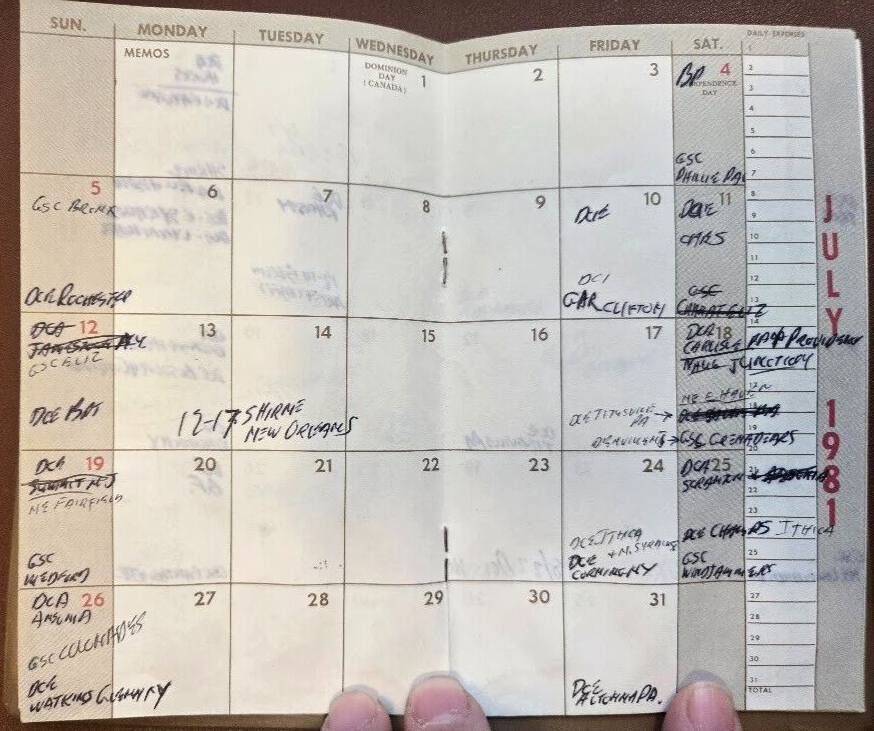 SUN.
MONDAY
TUESDAY
WEDNESDAY
THURSDAY
FRIDAY
SAT.
DAILY EXPENSES
MEMOS
DOMINION
DAY
(CANADA)
1
2
3
BP 4
INDEPENDENCE
DAY
GSC
5
GSC BRONX
DCE ROCHESTER
6
7
8
9
10
DCE
DCI
GAR CLIFTON
11
DCE
CARS
GSC
12
DCA
GSC ELIZ
DCE
13
14
15
16
17
12-17 SHRINE
NEW ORLEANS
DCE TITUSVILLE
PA
18
DCA
CARLISLE PA
NE E. HAVEN
GSC GRENADIERS
19
DCA
SUMMIT NJ
NE FAIRFIELD
GSC
MEDFORD
20
21
22
23
24
DCE ITHICA
+ N. SYRACUSE
DCE
CORNING NY
25
DCA
SCRANTON
DCE
ITHICA
GSC
WINDJAMMERS
26
DCA
ANSONIA
GSC
DCE
WATKINS GLEN NY
27
28
29
30
31
DCE
ALTOONA PA.
1
2
3
4
5
6
7
8
9
10
11
12
13
14
17
18
19
20
21
22
23
25
27
28
29
30
31
TOTAL
JULY
1981